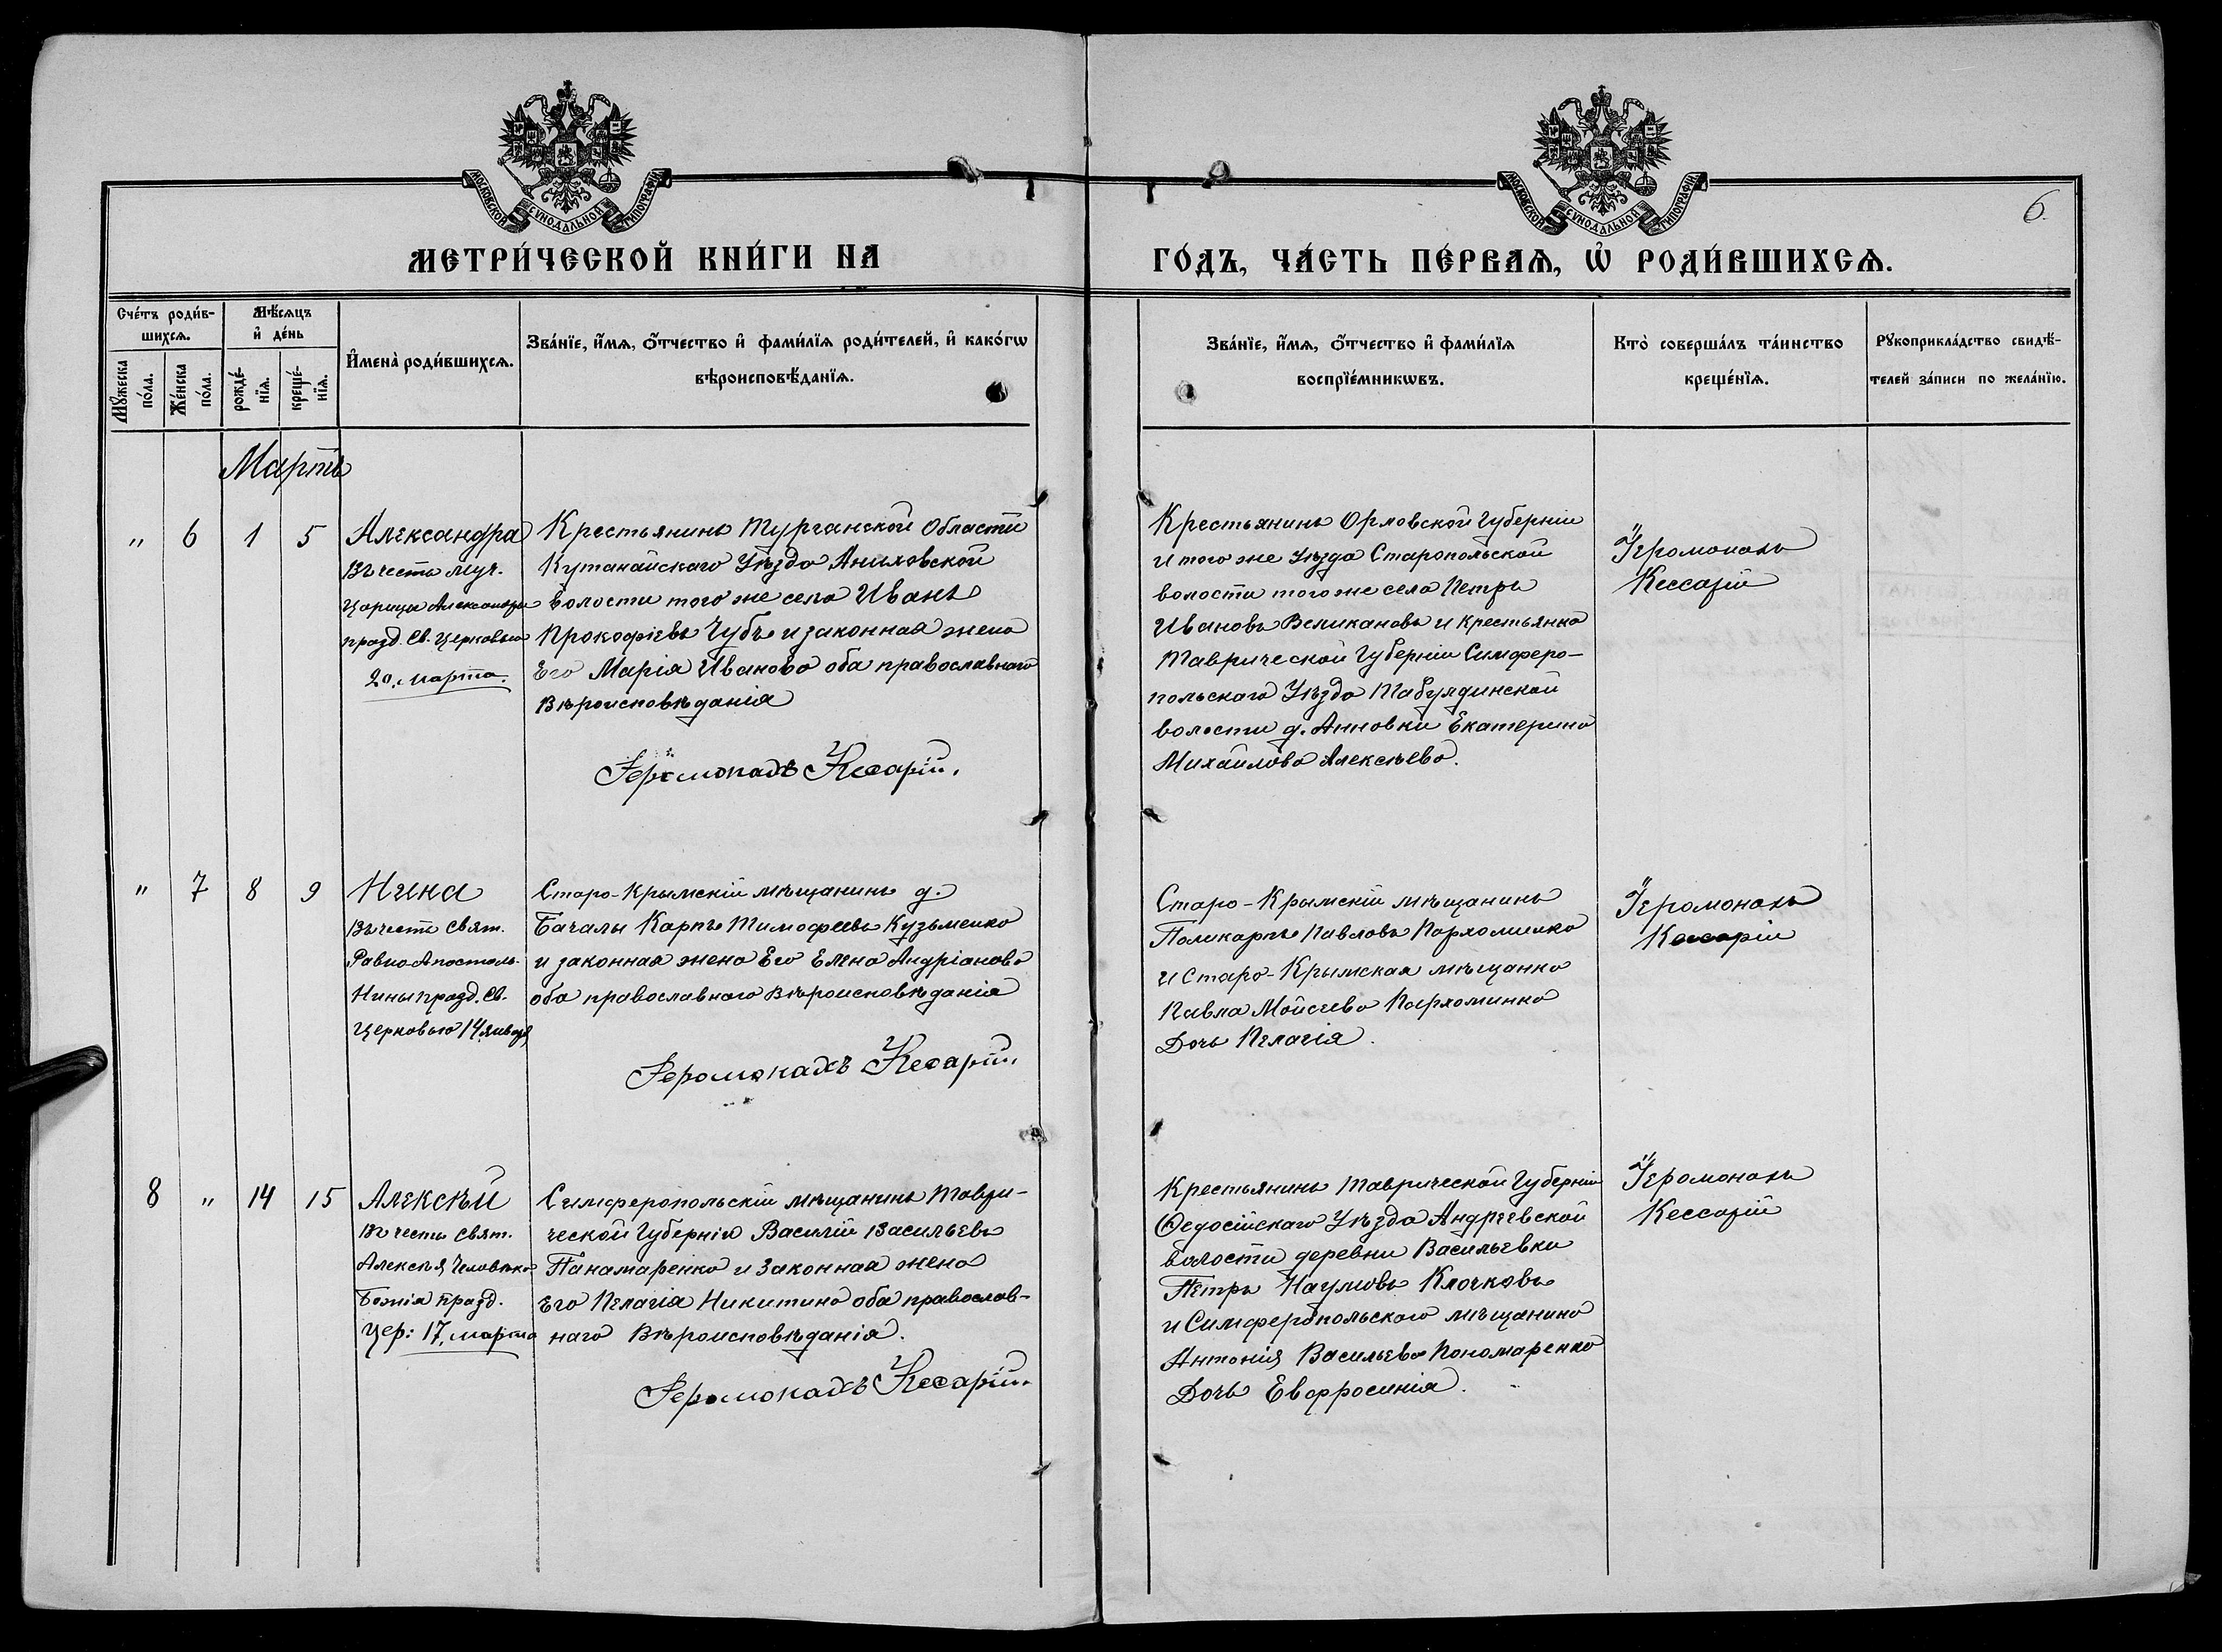 МОСКОВСКОЙ СѴНОДАЛЬНОЙ ТИПОГРАФІИ
МОСКОВСКОЙ СѴНОДАЛЬНОЙ ТИПОГРАФІИ
6.
МЕТРИ́ЧЕСКОЙ КНИ́ГИ НА
ГО́ДЪ, ЧА́СТЬ ПЕ́РВАѦ, Ѡ҆ РОДИ́ВШИХСѦ.
Сче́тъ роди́в-
шихсѧ.
Мꙋ́жеска по́ла.
Же́нска по́ла.
Мѣ́сѧцъ
и҆ де́нь
рожде́-
нїѧ.
креще́-
нїѧ.
И҆мена̀ роди́вшихсѧ.
Зва́нїе, и҆́мѧ, ѻ҆́тчество и҆ фами́лїѧ роди́телей, и҆ како́гѡ
вѣроисповѣ́данїѧ.
Зва́нїе, и҆́мѧ, ѻ҆́тчество и҆ фами́лїѧ
воспрїе́мникѡвъ.
Кто̀ соверша́лъ та́инство
креще́нїѧ.
Рꙋкоприкла́дство свидѣ́-
телей за́писи по жела́нїю.
Мартъ
" 6 1 5
Александра
Въ честь муч.
Царицы Александры
празд. Св. Церковью
20. марта.
Крестьянинъ Тургайской Области
Кустанайскаго Уѣзда
волости того же села Иванъ
Прокофіевъ Чубъ и законная жена
Его Марія Иванова оба православнаго
Вѣроисповѣданія
Іеромонахъ Кесарій.
Крестьянинъ Орловской Губерніи
и того же уѣзда Старопольской
волости того же села Петръ
Ивановъ Великановъ и крестьянка
Таврической Губерніи Симферо-
польскаго Уѣзда Табулдинской
волости д. Анновки Екатерина
Михайлова Алексѣева.
Іеромонахъ
Кессарій
" 7 8 9
Нина
Въ честь Свят.
Равно-Апостоль.
Нины празд. Св.
Церковью 14 января
Старо-Крымскій мѣщанинъ д.
Бачалы Карпъ Тимофеевъ Кузьменко
и законная жена Его Елена Андріанова
оба православнаго Вѣроисповѣданія
Іеромонахъ Кесарій.
Старо-Крымскій мѣщанинъ
Поликарпъ Павловъ Пархоменко
и Старо-Крымская мѣщанка
Павла Мойсеева Пархоминко
Дочь Пелагія.
Іеромонахъ
Кессарій
8 " 14 15
Алексѣй
Въ честь Свят.
Алексѣя Человѣка
Божія празд.
Цер: 17. марта
Симферопольскій мѣщанинъ Таври-
ческой Губерніи Василій Васильевъ
Панамаренко и Законная жена
Его Пелагія Никитина оба православ-
наго Вѣроисповѣданія.
Іеромонахъ Кесарій.
Крестьянинъ Таврической Губерніи
Ѳедосійскаго Уѣзда Андреевской
волости деревни Васильевки
Петръ Наумовъ Клочковъ
и Симферопольскаго мѣщанина
Антонія Васильева Пономаренко
Дочь Евфросинія.
Іеромонахъ
Кессарій